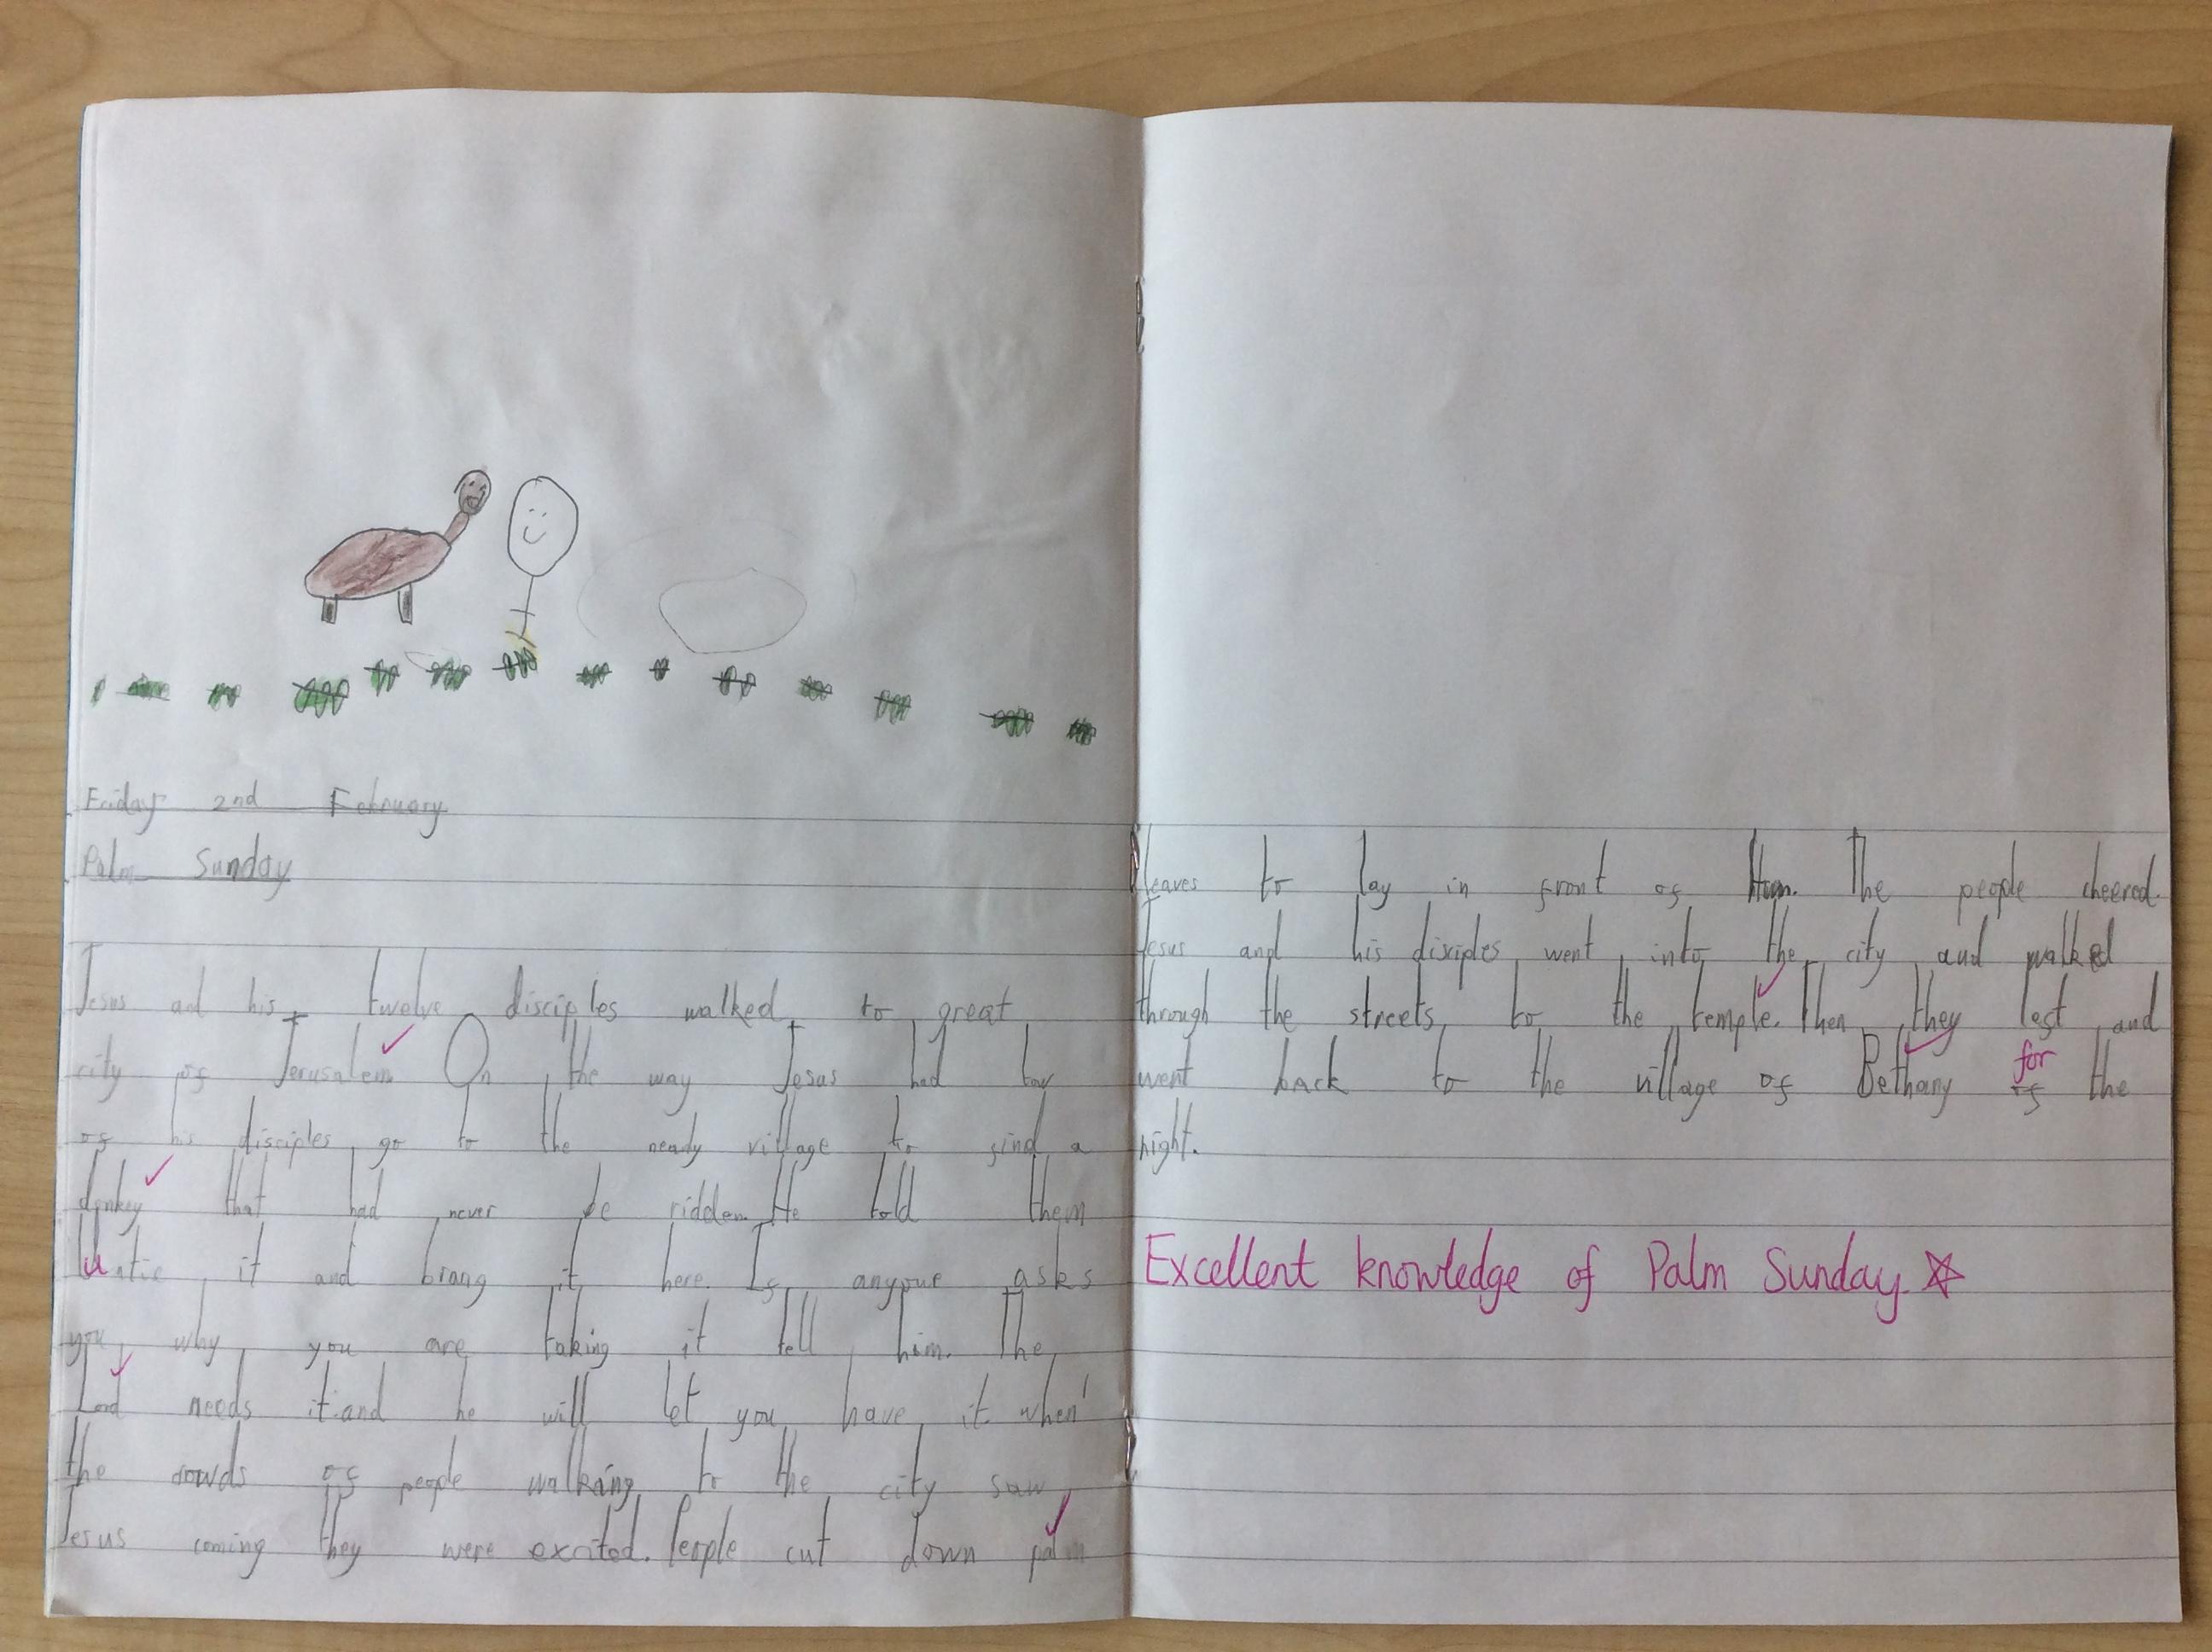 Friday 2nd February
Palm Sunday
Jesus ad his twelve disciples walked to great
city of Jerusalem. On the way Jesus had
of his disciples go to the neady village to find a
donkey that had never be ridden. He told them
untie it and brang it here. If anyone asks
you why you are taking it tell him. The
Lord needs it and he will let you have it when
the crowds of people walking to the city saw
Jesus coming they were excited. People cut down palm
leaves to lay in front of Him. The people cheered.
Jesus and his disciples went into the city and walked
through the streets to the temple. Then they left and
went back to the village of Bethany of the
for
night.
Excellent knowledge of Palm Sunday.